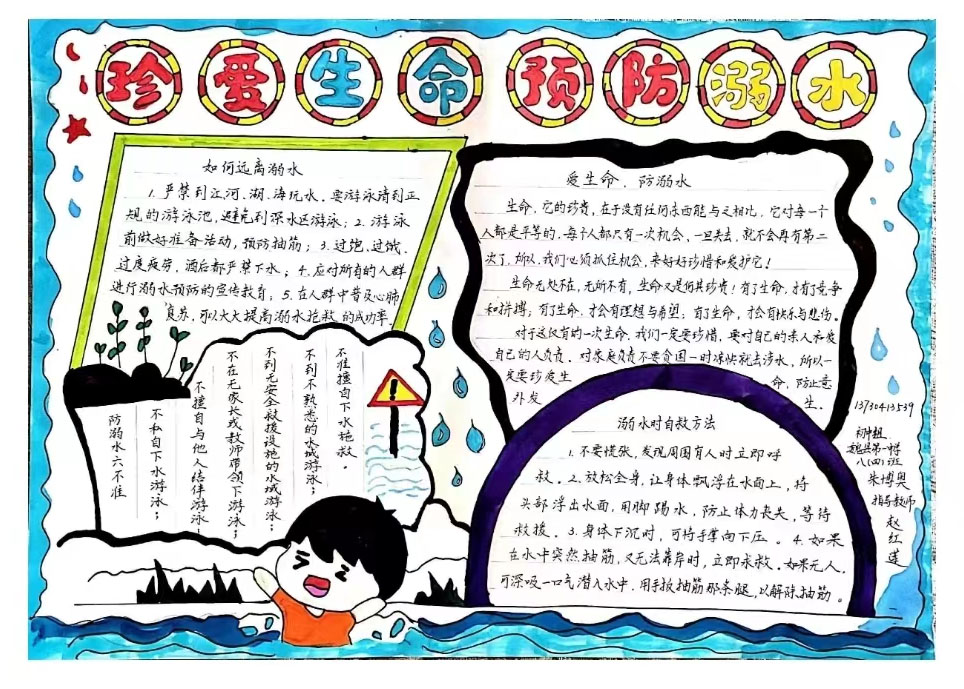 珍爱生命 预防溺水
如何远离溺水
1.严禁到江河、湖、海玩水,要游泳请到正
规的游泳池,避免到深水区游泳;2.游泳
前做好准备活动,预防抽筋;3.过饱、过饿、
过度疲劳,酒后都严禁下水;4.应对所有的人群
进行溺水预防的宣传教育;5.在人群中普及心肺
复苏,可以大大提高溺水抢救的成功率.
爱生命、防溺水
生命,它的珍贵,在于没有任何东西能与之相比,它对每一个
人都是平等的,每个人都只有一次机会,一旦失去,就不会再有第二
次了,所以,我们必须抓住机会,来好好珍惜和爱护它!
生命无处不在,无所不有,生命又是何其珍贵!有了生命,才有了竞争
和拼搏;有了生命,才会有理想与希望;有了生命,才会有快乐与悲伤。
对于这仅有的一次生命,我们一定要珍惜,要对自己的亲人和爱
自己的人负责,对家庭负责不要贪图一时凉快就去涉水,所以一
定要珍爱生命,防止意
外发生。
不准擅自下水施救.
不到不熟悉的水域游泳;
不到无安全救援设施的水域游泳;
不在无家长或教师带领下游泳;
不擅自与他人结伴游泳
不私自下水游泳;
防溺水六不准
溺水时自救方法
1.不要慌张,发现周围有人时立即呼
救。2.放松全身,让身体飘浮在水面上,将
头部浮出水面,用脚踢水,防止体力丧失,等待
救援。3.身体下沉时,可将手掌向下压。4.如果
在水中突然抽筋,又无法靠岸时,立即求救。如果无人,
可深吸一口气潜入水中,用手扳抽筋那条腿,以解除抽筋。
13730413539
初中组
魏县第一中学
八(四)班
朱博奥
指导教师
赵红莲